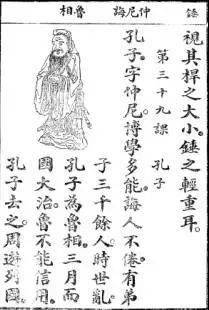 錘　仲尼　誨　魯　相
視其桿之大小。錘之輕重耳。
第三十九課　孔子
孔子字仲尼。博學多能。誨人不倦。有弟
子三千餘人。時世亂。
孔子為魯相。三月而
國大治。魯不能信用。
孔子去之。周遊列國。